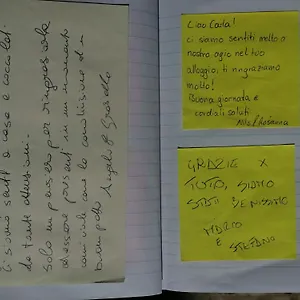 Ci siamo sentiti a casa e coccolati
da tante attenzioni.
Solo un pensiero per ringraziarla
di essere presenti in un momento
conviviale con la condivisione di
buon
Angelo &
Ciao Carla!
ci siamo sentiti molto a
nostro agio nel tuo
alloggio, ti ringraziamo
molto!
Buona giornata e
cordiali saluti
Rosanna
GRAZIE X
TUTTO, SIAMO
STATI BENISSIMO
MARCO
E
STEFANO